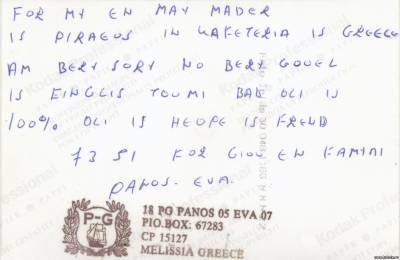 FOR MY EN MAY MADER
IS PIRAEUS IN KAFETERIA IS GREECE
AM BERY SORY NO BERY GOUEL
IS EINGLIS TOUMI BAD OLI IS
100% OLI IS HEOPE IS FREND
73 51 FOR GIOU EN FAMIAI
PANOS - EVA.
P-G
18 PG PANOS 05 EVA 07
PIO.BOX: 67283
CP 15127
MELISSIA GREECE